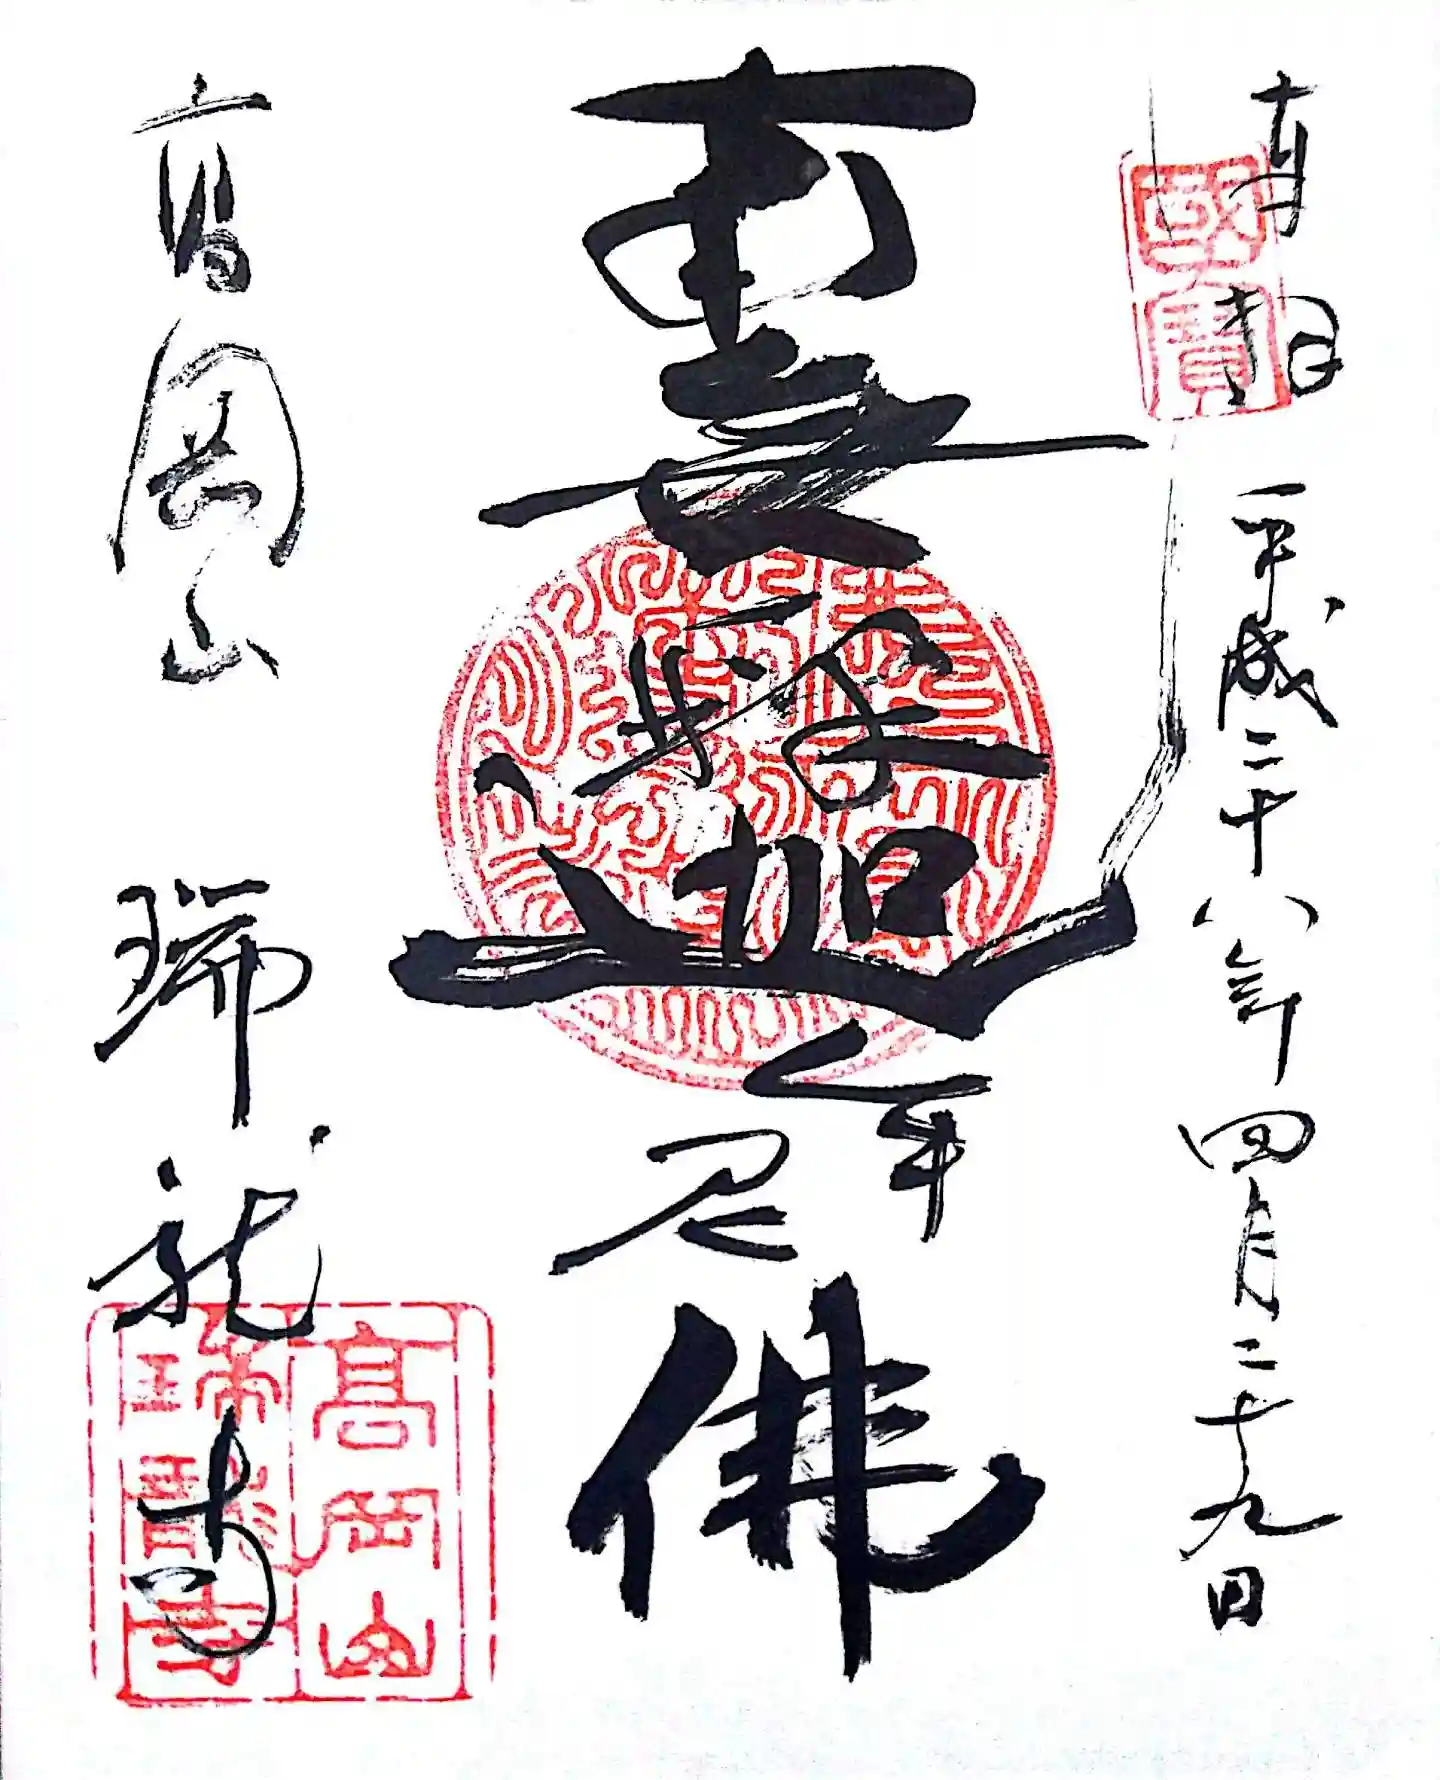 奉拝 平成二十八年四月二十九日
國寶
南無釋迦牟尼佛
高岡山 瑞龍寺
高岡山
瑞龍寺